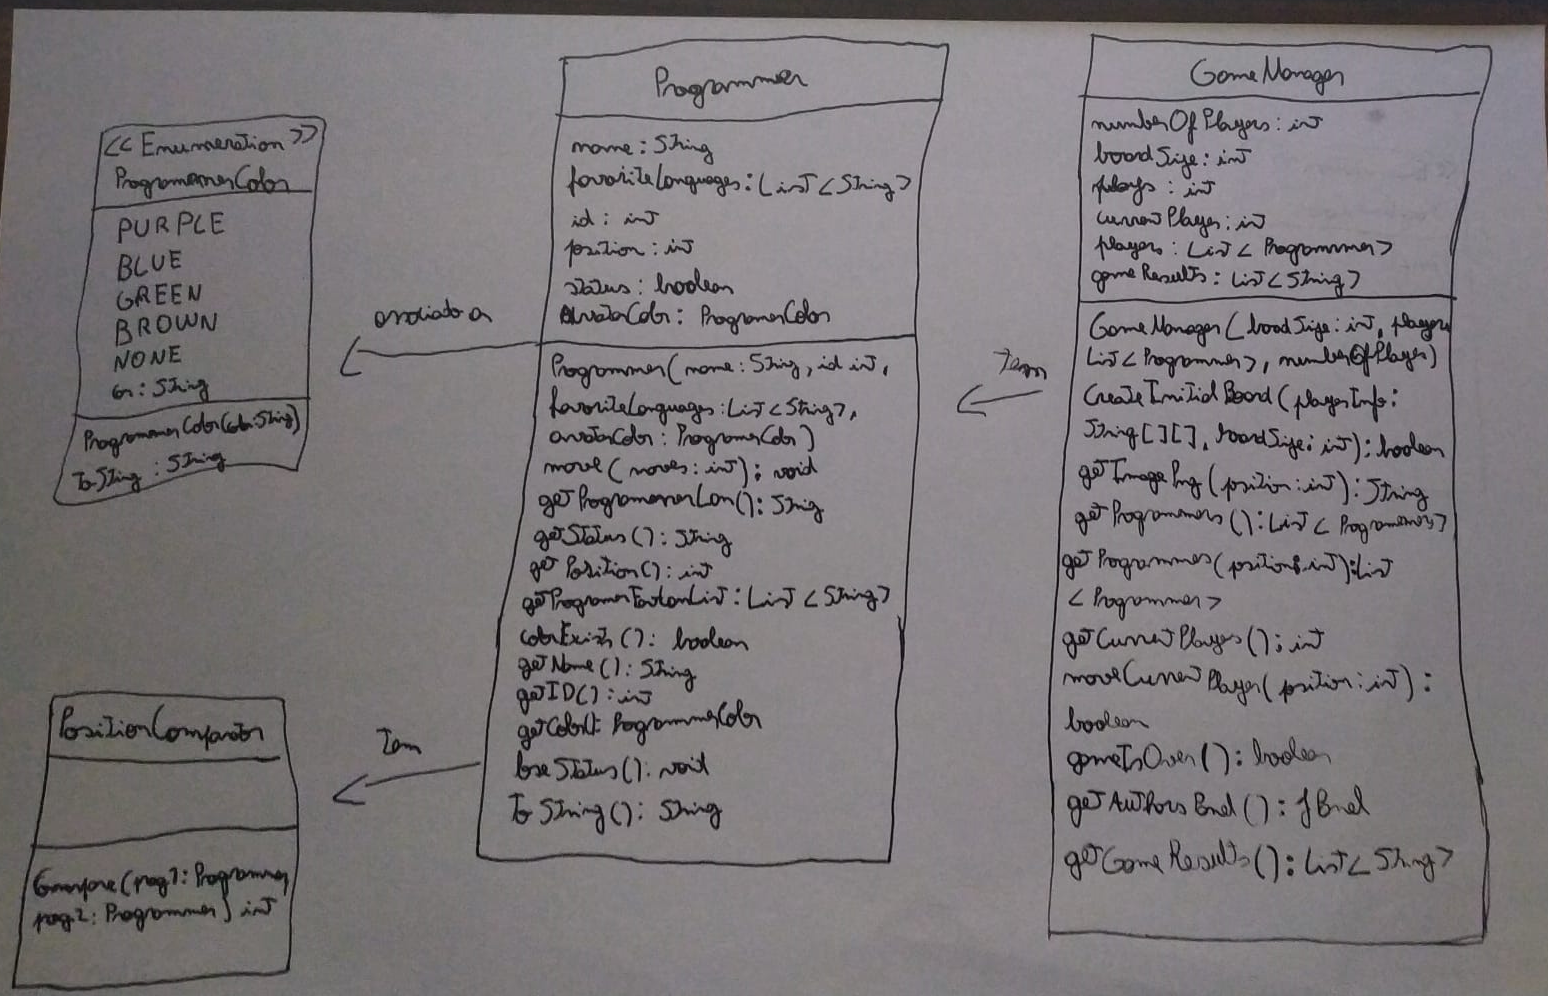 << Enumeration >>
ProgrammerColor
PURPLE
BLUE
GREEN
BROWN
NONE
cor: String
ProgrammerColor(color:String)
ToString : String
associado a
Programmer
name: String
favoriteLanguages: List<String>
id: int
position: int
status: boolean
avatarColor: ProgramerColor
Programmer(name: String, id int,
favoriteLanguages: List<String>,
avatarColor: ProgramerColor)
move(moves: int): void
getStatus(): String
getPosition(): int
colorExists(): boolean
getName(): String
getID(): int
getColor(): ProgrammerColor
loseStatus(): void
ToString(): String
Tem
PositionComparator
Compare(prog1: Programmer,
prog2: Programmer) int
Tem
GameManager
numberOfPlayers: int
boardSize: int
plays: int
currentPlayer: int
players: List<Programmer>
gameResults: List<String>
GameManager(boardSize: int, players
List<Programmer>, numberOfPlayer)
CreateInitialBoard(playerInfo:
String[][], boardSize: int): boolean
getImagePng(position: int): String
getProgrammers(): List<Programmers>
getProgrammers(position: int): List
<Programmer>
getCurrentPlayers(): int
moveCurrentPlayer(position: int):
boolean
gameIsOver(): boolean
getAuthorsPanel(): JPanel
getGameResults(): List<String>